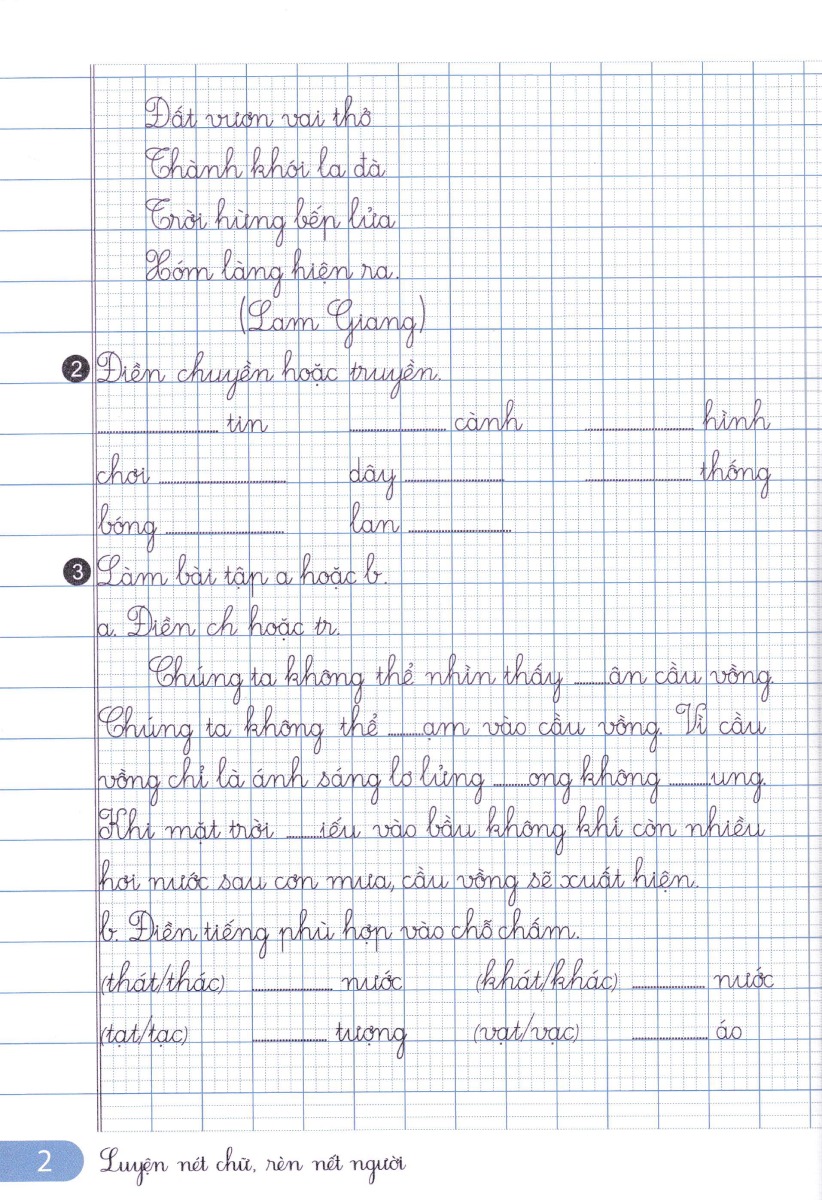 Đất vươn vai thở
Thành khói la đà
Trời hừng bếp lửa
Xóm làng hiện ra.
(Lam Giang)
2 Điền chuyền hoặc truyền.
.......... tin .......... cành .......... hình
chơi .......... dây .......... .......... thống
bóng .......... lan ..........
3 Làm bài tập a hoặc b.
a. Điền ch hoặc tr.
Chúng ta không thể nhìn thấy ......ân cầu vồng.
Chúng ta không thể ......ạm vào cầu vồng. Vì cầu
vồng chỉ là ánh sáng lơ lửng ......ong không ......ung.
Khi mặt trời ......iếu vào bầu không khí còn nhiều
hơi nước sau cơn mưa, cầu vồng sẽ xuất hiện.
b. Điền tiếng phù hợp vào chỗ chấm.
(thát/thác) .......... nước (khát/khác) .......... nước
(tạt/tạc) .......... tượng (vạt/vạc) .......... áo
2 Luyện nét chữ, rèn nết người